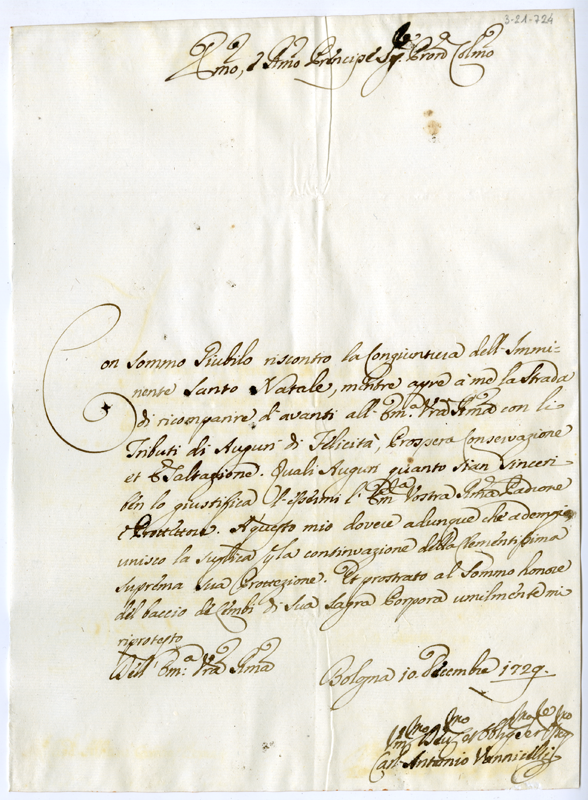 3-21-724
Emo, e Rmo Principe Sig.re Prone Colmo
Con sommo Giubilo riscontro la Congiuntura dell' Immi=
nente Santo Natale, mentre apre à me la Strada
di ricomparire d'avanti all' Em.a Vra Rma con li
Tributi di Auguri di Felicità, Prospera Conservazione
et Esaltazione. Quali Auguri quanto sian Sinceri
ben lo giustifica l' Em.a Vostra Rma Padrone
e Protettore. A questo mio dovere adunque che adempio,
unisco la suplica p la continuazione della Clementissima
suprema sua Protezione. Et prostrato al Sommo honore
del baccio de Lembi di Sua Sagra Porpora umilmente mi
riprotesto
Dell' Em.a Vra Rma
Bologna 10. Decembre 1729.
Um.mo Dev.mo et Obblig.mo Ser.re
Antonio Vannicelli